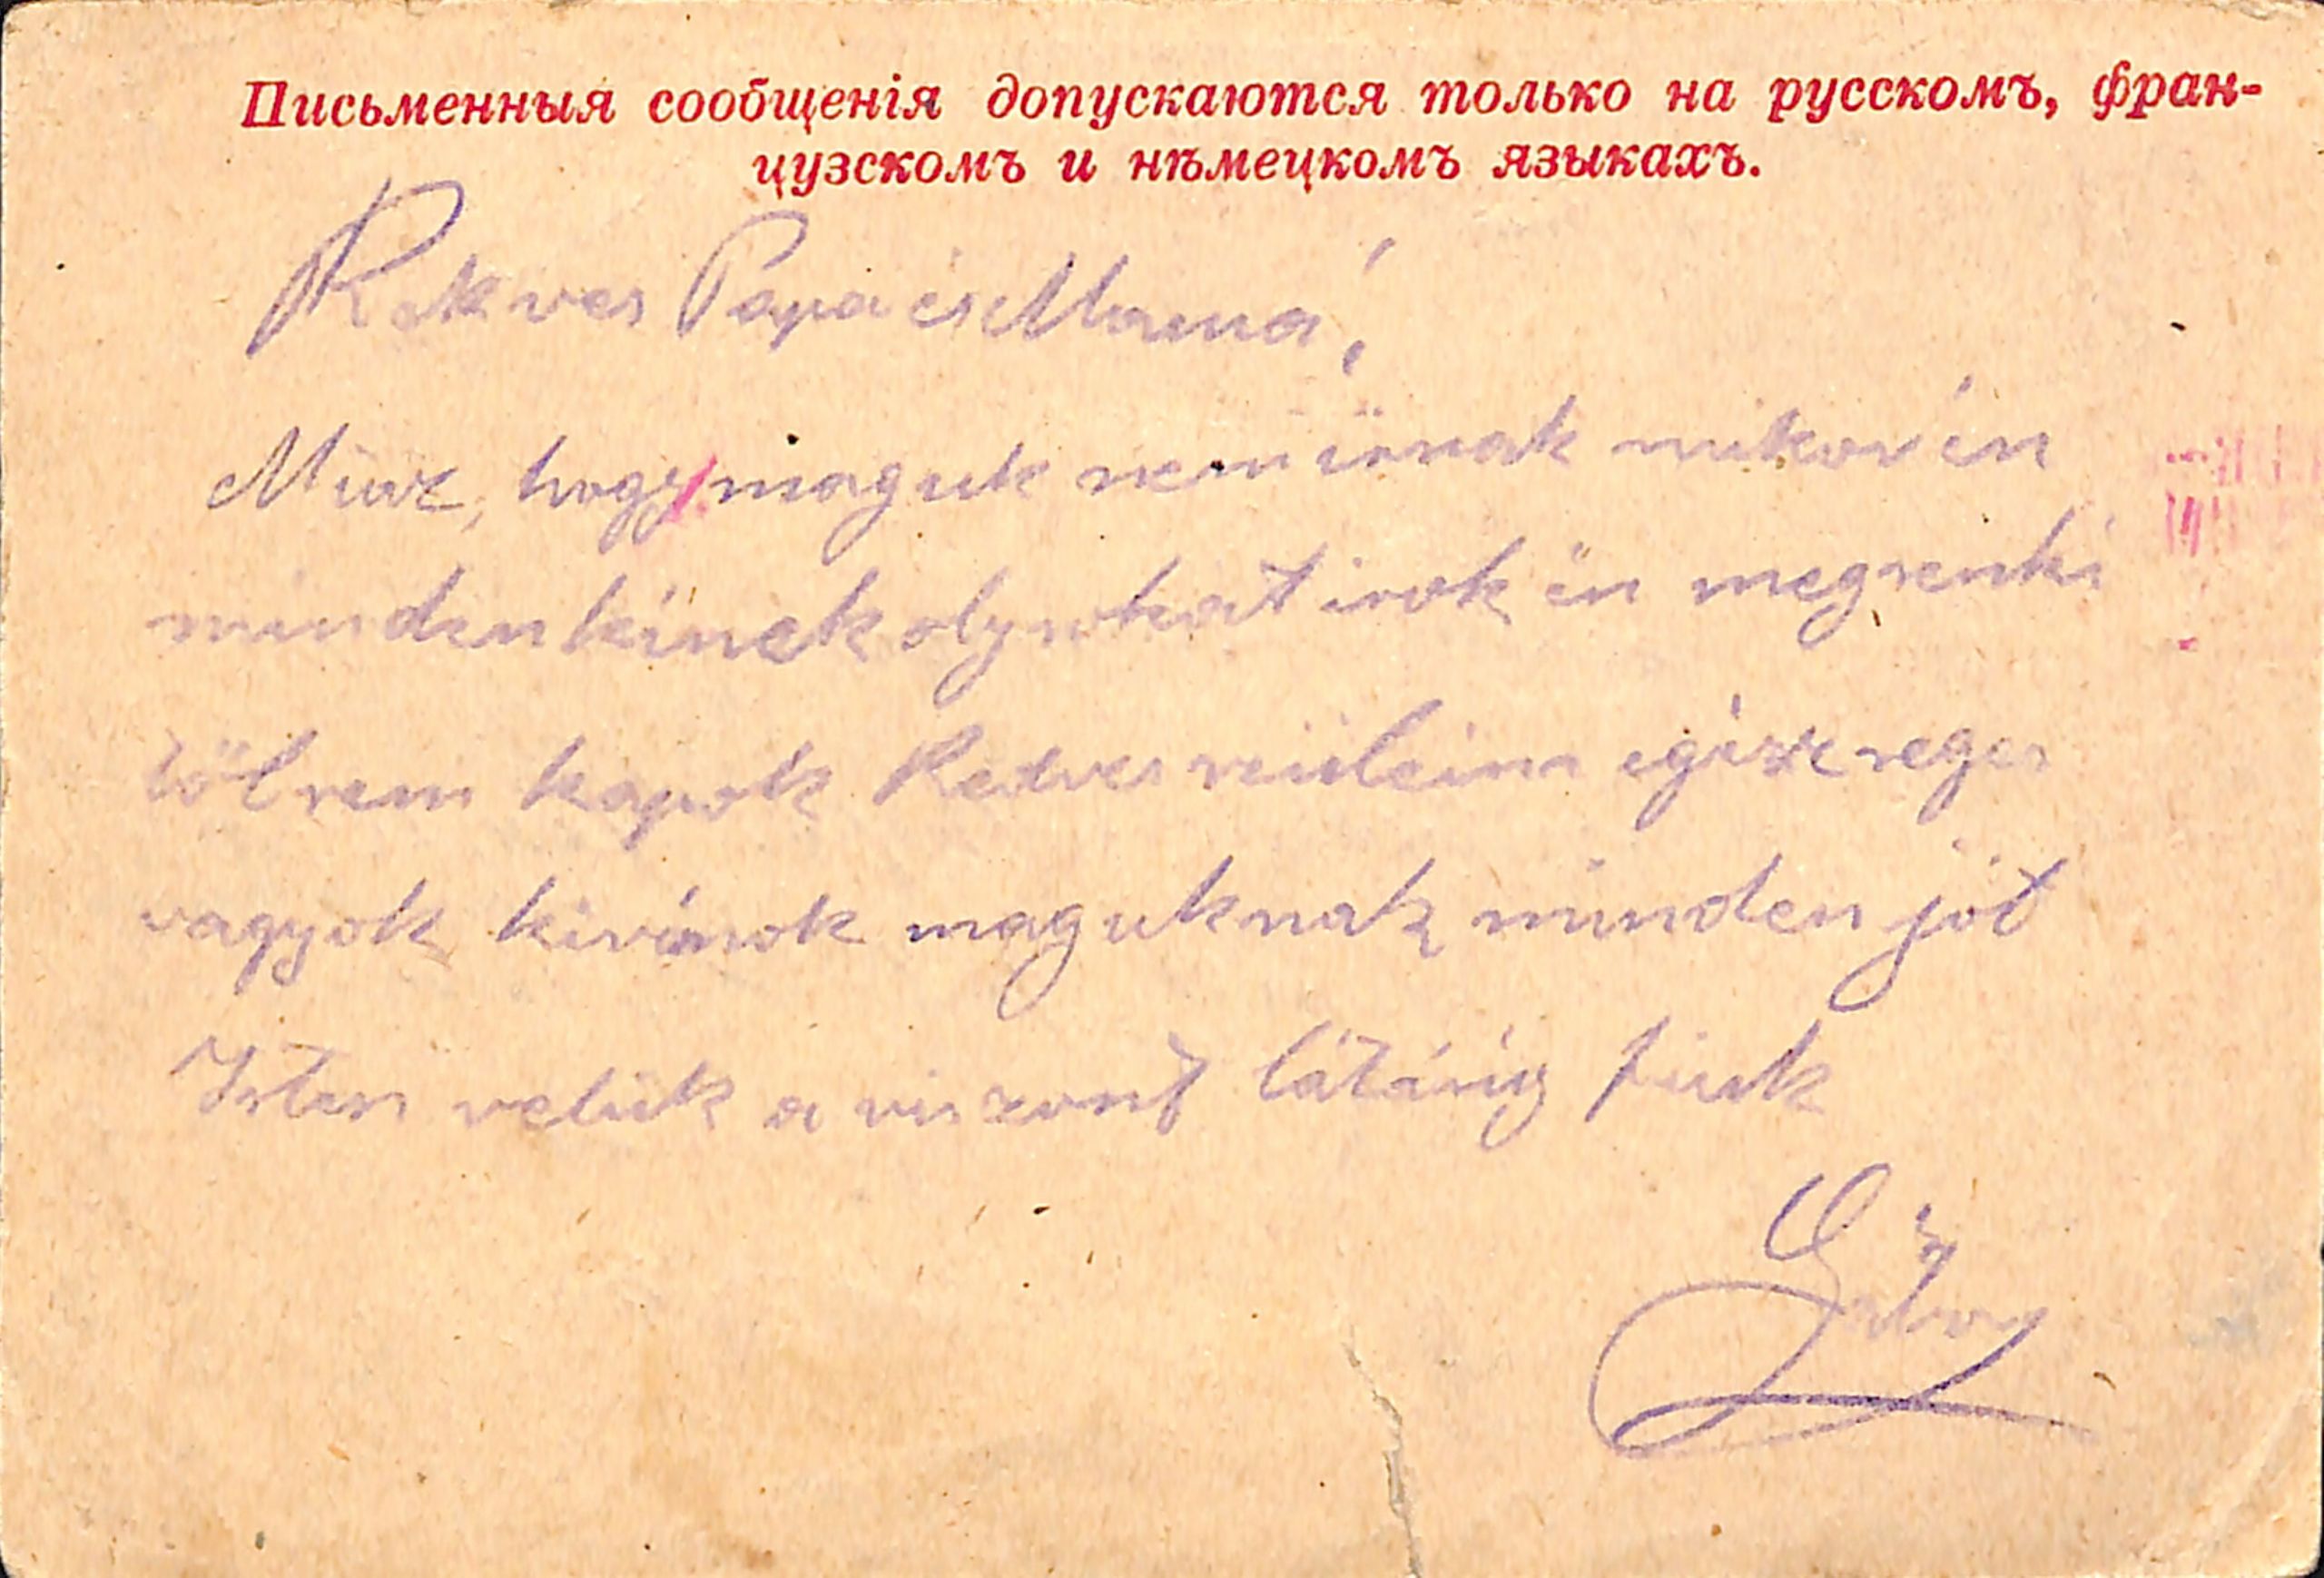 Письменныя сообщенія допускаются только на русскомъ, фран-
цузскомъ и нѣмецкомъ языкахъ.
Kekves Papa és Mama!
hogy maguk nem irnak mikor én
mindenkinek olyn sokat irok én meg senki
től sem kapok Kedves szüleim egészseges
vagyok kivánok maguknak minden jót
Isten velük a viszont látásig fiuk